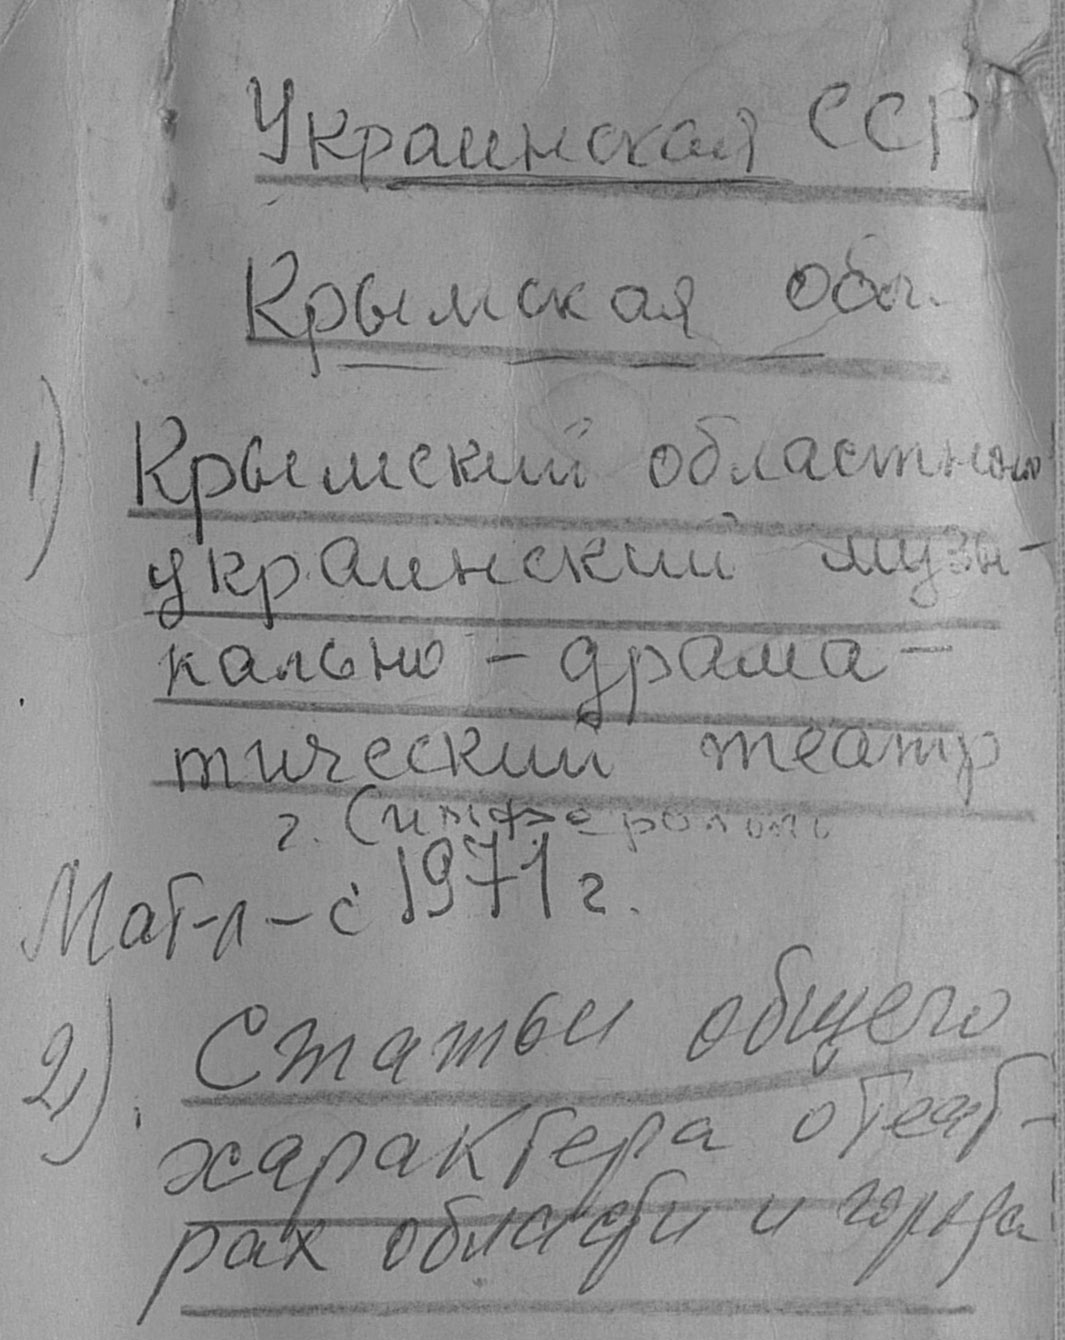 Украинская ССР
Крымская обл.
1) Крымский областной
украинский музы-
кально-драма-
тический театр
г. Симферополь
Мат-л-с 1971 г.
2) Статьи общего
характера о теат-
рах области и города